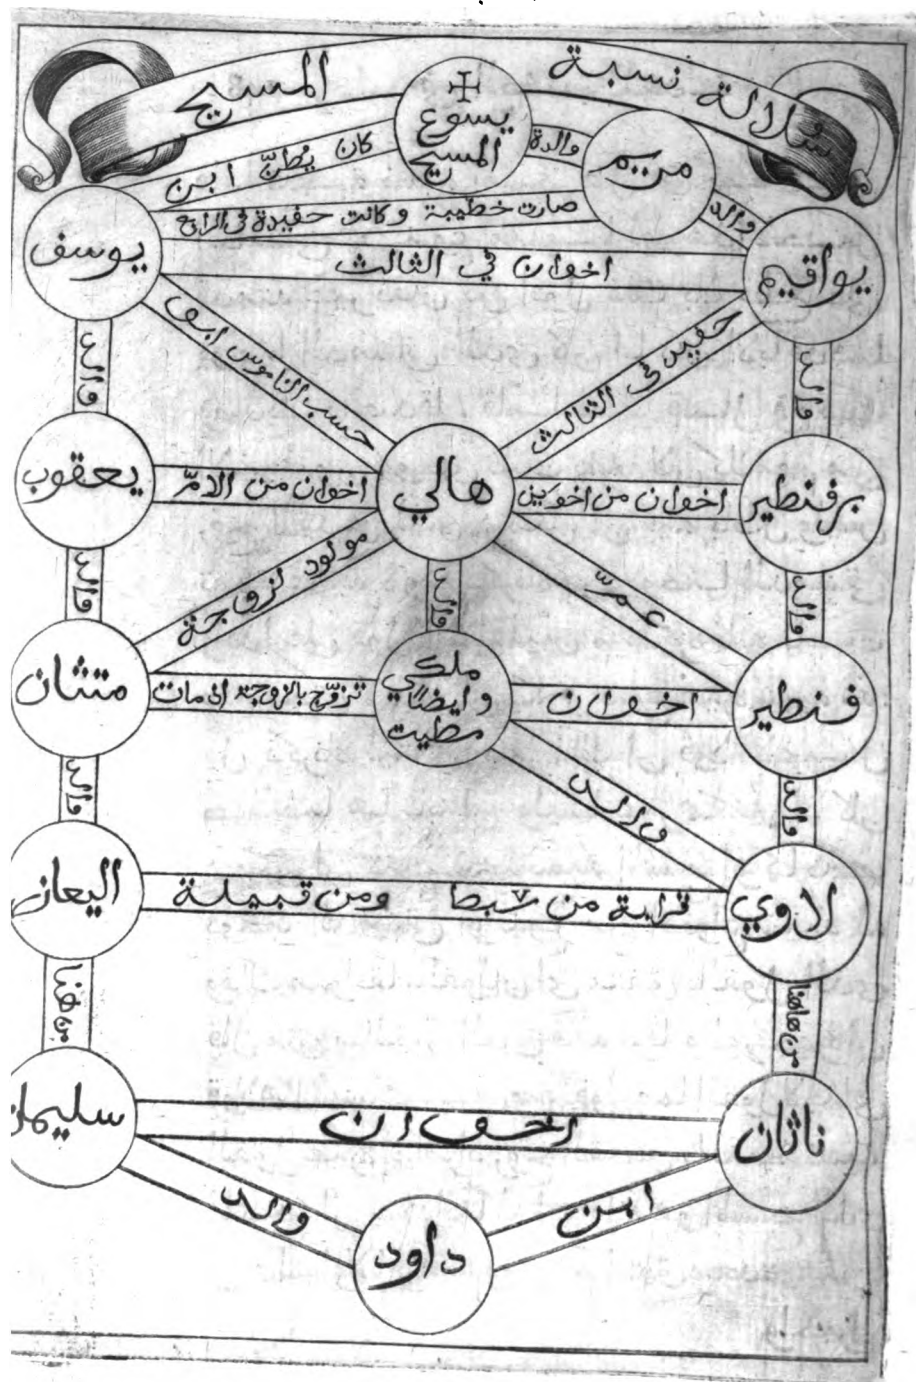 سُلالة نسبة المسيح
يسوع
المسيح
والدة
مريم
والد
كان يُظنّ ابن
صارت خطيبة وكانت حفيدة في الرابع
يوسف
اخوان في الثالث
يواقيم
والد
حسب الناموس ابن
حفيد في الثالث
والد
يعقوب
اخوان من الامّ
هالي
اخوان من اخوين
برفنطير
والد
مولود لزوجة
والد
عمّ
والد
متثان
تزوّج بالزوجة اذ مات
ملكي
وايضًا
مطيت
اخوان
فنطير
والد
والد
والد
اليعازر
قرابة من سبط ومن قبيلة
لاوي
من هنا
من هاهنا
سليمان
اخوان
ناثان
والد
ابن
داود